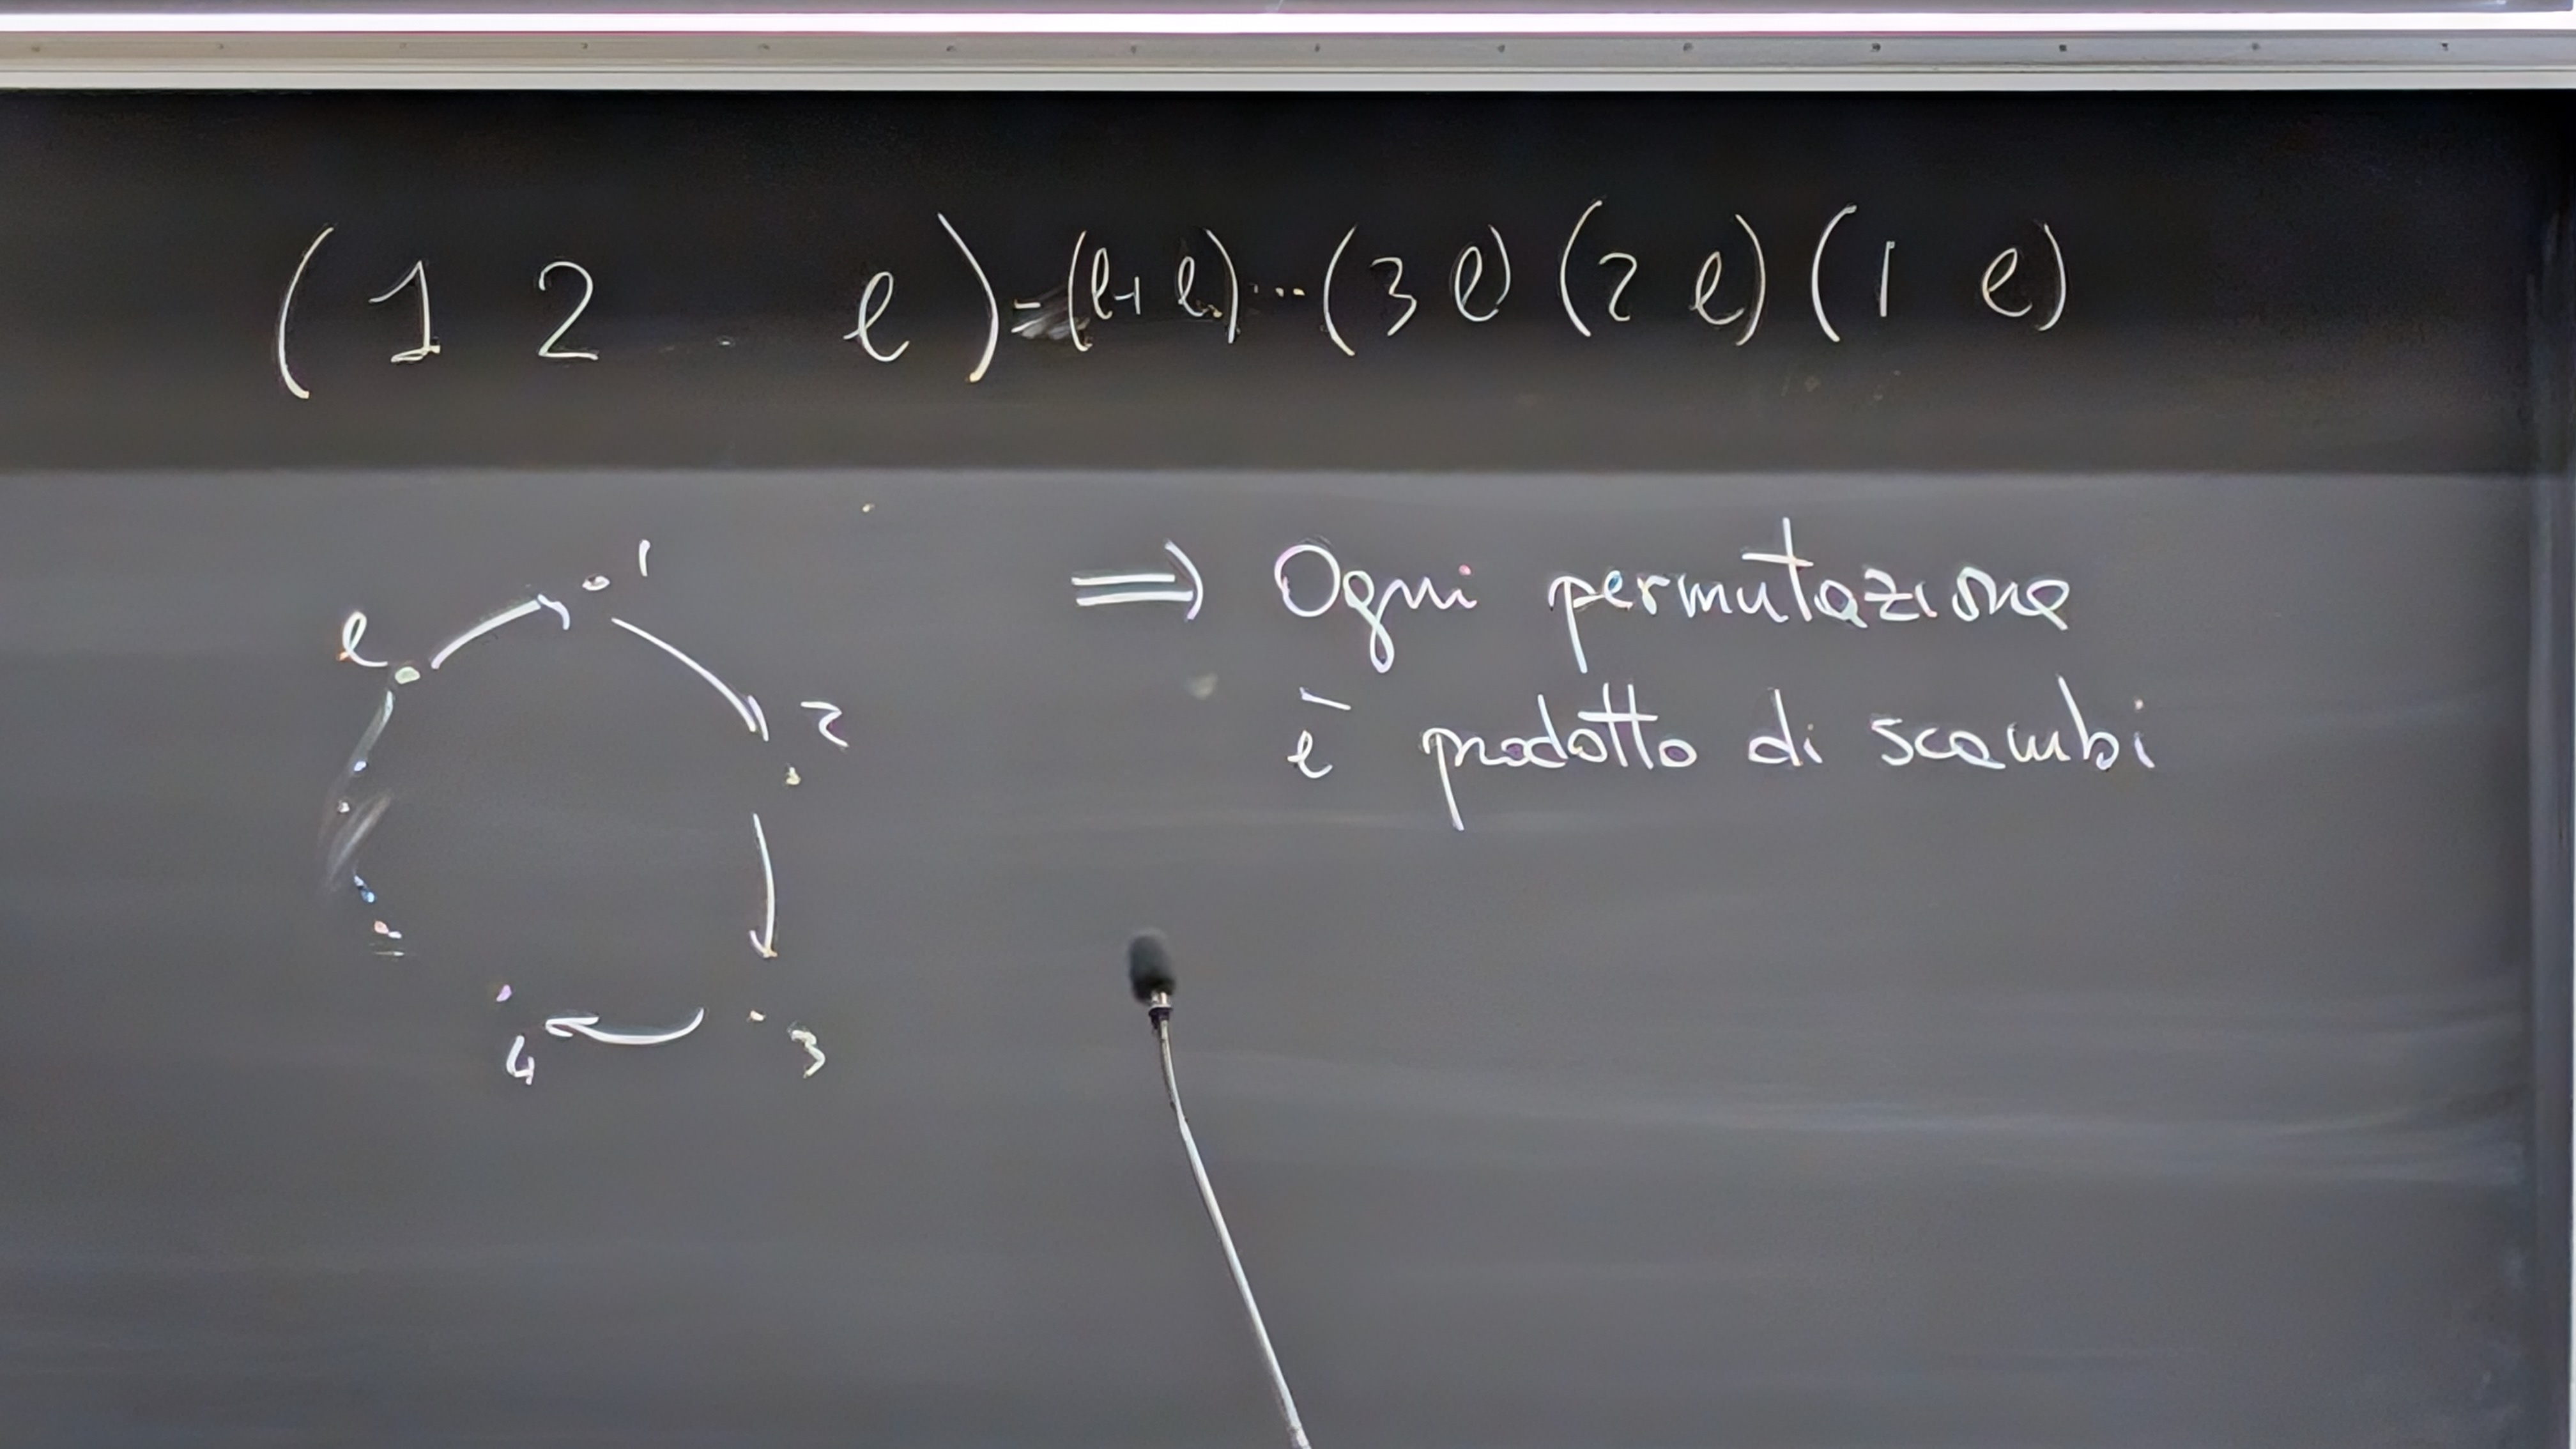 (1 2 . l) = (l-1 l) ... (3 l) (2 l) (1 l)
1
l
2
3
4
⇒ Ogni permutazione
è prodotto di scambi